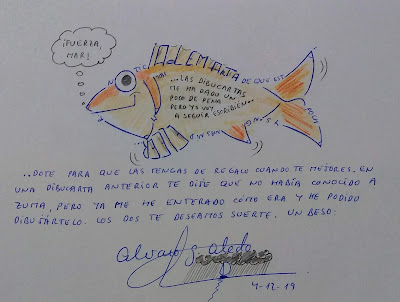 ¡FUERZA,
MAR!
ADEMÁS
DE QUE EST
NO TE
... LAS DIBUCARTAS
ME HA DADO UN
POCO DE PENA
PERO YO VOY
A SEGUIR ESCRIBIÉN...
...DOTE PARA QUE LAS TENGAS DE REGALO CUANDO TE MEJORES. EN
UNA DIBUCARTA ANTERIOR TE DIJE QUE NO HABÍA CONOCIDO A
ZUMA, PERO YA ME HE ENTERADO CÓMO ERA Y HE PODIDO
DIBUJÁRTELO. LOS DOS TE DESEAMOS SUERTE. UN BESO.
Alvaro
4-12-19